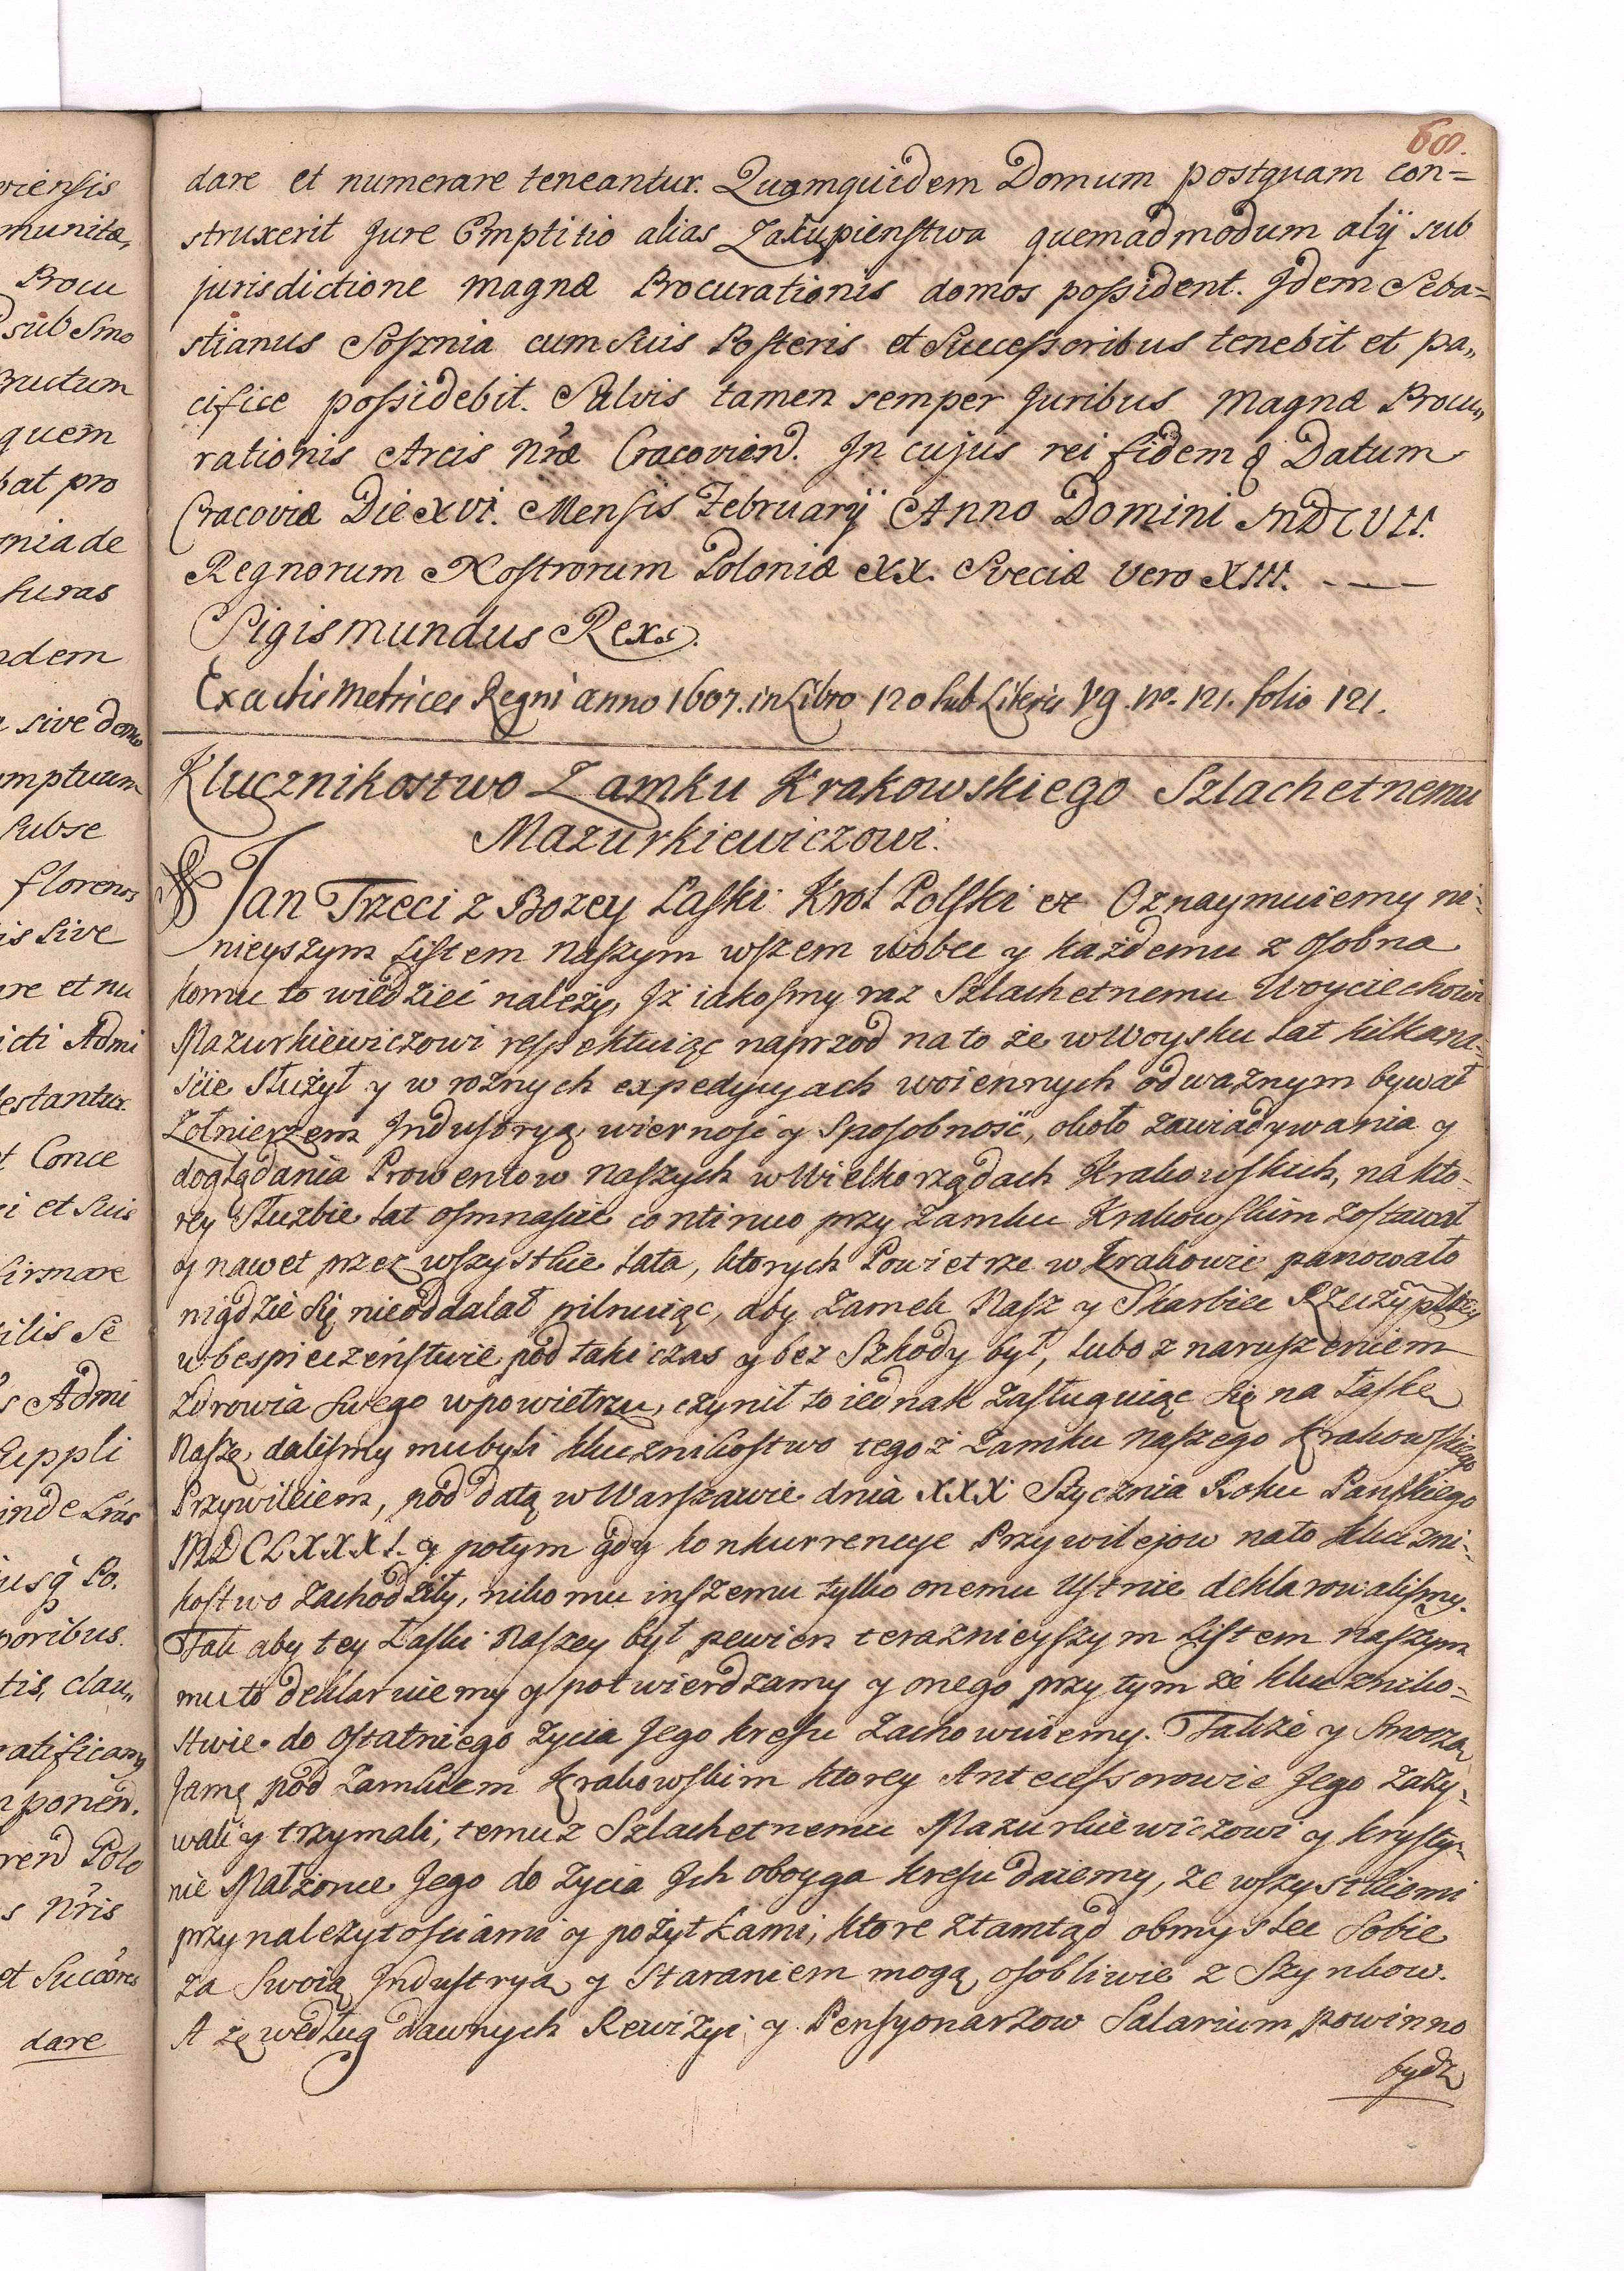 68.
dare et numerare teneantur. Quamquidem Domum postquam con=
struxerit Jure Emptitio alias Zakupienstwa quemadmodum alÿ sub
jurisdictione magnæ Procurationis domos possident. Jdem Seba=
stianus Sosznia cum Suis Posteris et Successoribus tenebit et pa„
cifice possidebit. Salvis tamen semper Juribus Magnæ Procu„
rationis Arcis Nræ Cracovien. In cujus rei fidem & Datum
Cracoviæ Die XVI. Mensis Februarÿ Anno Domini MDCVII.
Regnorum Nostrorum Poloniæ XX. Sveciæ vero XIII.
Sigismundus Rex.
Ex actis Metrices Regni anno 1607. in Libro 120 sub Literis Vg. No. 121. folio 121.
Klucznikostwo Zamku Krakowskiego Szlachetnemu
Mazurkiewiczowi.
Jan Trzeci z Bozey Laski Krol Polski etc Oznaymuiemy ni=
nieyszym Listem Naszym wszem wobec y każdemu z osobna
komu to wiedzieć należy, Jż iakosmy raz Szlachetnemu Woyciechowi
Mazurkiewiczowi respektuiąc naprzod na to że w Woysku lat kilkana=
scie służył y w rożnych expedycyach woiennych odważnym bywał
Żołnierzem Industryą, wierność y sposobność, około zawiadywania y
doglądania Prowentow Naszych w Wielkorządach Krakowskich, na kto=
rey służbie lat osmnascie continuo przy Zamku Krakowskim zostawał
y nawet przez wszystkie lata, ktorych Powietrze w Krakowie panowało
nigdzie się nieoddalał pilnuiąc, aby Zamek Nasz y Skarbiec Rzeczyplitey
w bespieczeństwie pod taki czas y bez Szkody był, lubo z naruszeniem
zdrowia swego w powietrzu, czynił to iednak zasługuiąc się na łaskę
Naszę, dalismy mu byli klucznikostwo tegoż Zamku Naszego Krakowskiego
Przywileiem, pod datą w Warszawie dnia XXX Stycznia Roku Pańskiego
MDCLXXXI. y potym gdy konkurrencye Przywilejow na to kluczni=
kostwo zachodziły, nikomu inszemu tylko onemu ustnie deklarowalismy.
Tak aby tey Łaski Naszey był pewien teraznieyszym Listem Naszym
mu to deklaruiemy y potwierdzamy y onego przy tym że kluczniko=
stwie do ostatniego życia Jego kresu zachowuiemy. Także y Smoczą
Jamę pod Zamkiem Krakowskim ktorey Antecessorowie Jego zaży=
wali y trzymali, temuz Szlachetnemu Mazurkiewiczowi y Krysty=
nie Małżonce Jego do życia Jch oboyga kresu daiemy, ze wszystkiemi
przynależytościami y pożytkami, ktore ztamtąd obmyslec sobie
za swoią Industryą y staraniem mogą, osobliwie z Szynkow.
A że według dawnych Rewizyi y Pensyonarzow Salarium powinno
bydz
wiensis
munita„
Procu
sub Smo
quem
bat pro
nia de
suras
dem
sive domo
mptuum
subse
florenos
is sive
re et nu
icti Admi
testantur.
t Conce
i et suis
firmare
ilis Se
s Admi
suppli
poribus.
tis, clau„
ratificam
ponend.
rend Polo
s Nris
et Succores
dare